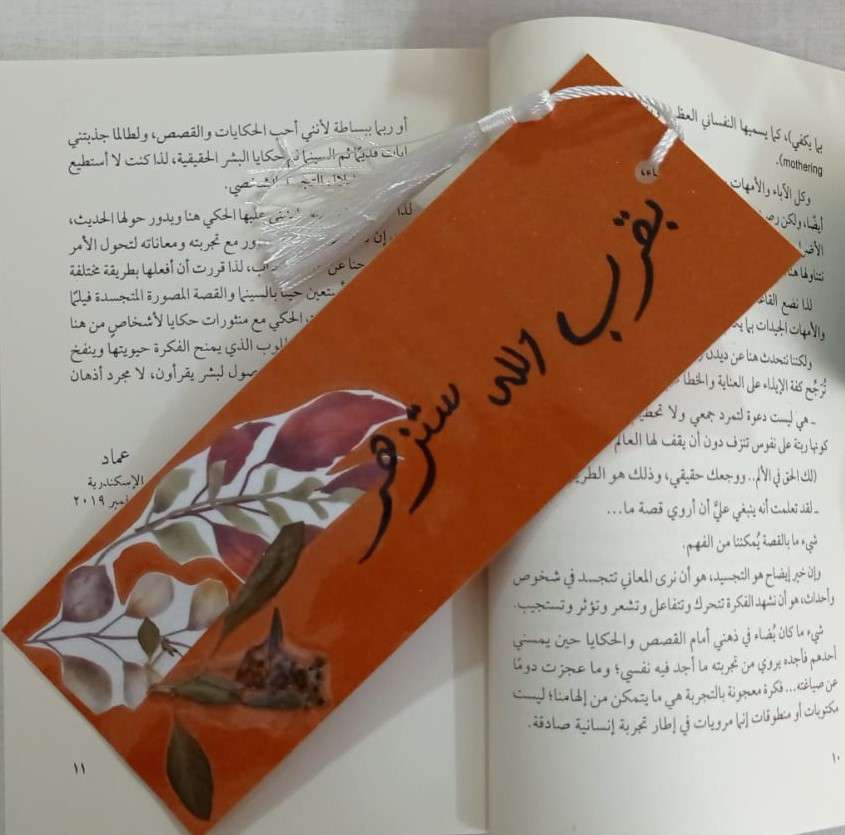 بما يكفي)، كما يسميها النفساني
mothering).
وكل الآباء والأمهات
أيضًا، ولكن
نتناولها هنا
لذا نضع
والأمهات الجيدات بما
ولكننا نتحدث هنا عن
تُرَجِّح كفة الإيذاء على العناية والخطأ
ـ هي ليست دعوة لتمرد جمعي ولا
كونها ربتة على نفوس تنزف دون أن يقف لها العالم
(لك الحق في الألم.. ووجعك حقيقي، وذلك هو
ـ لقد تعلمت أنه ينبغي عليَّ أن أروي قصة ما...
شيء ما بالقصة يُمكننا من الفهم.
وإن خير إيضاح هو التجسيد، هو أن نرى المعاني تتجسد في شخوص
وأحداث، هو أن نشهد الفكرة تتحرك وتتفاعل وتشعر وتؤثر وتستجيب.
شيء ما كان يُضاء في ذهني أمام القصص والحكايا حين يمسني
أحدهم فأجده يروي من تجربته ما أجد فيه نفسي؛ وما عجزت دومًا
عن صياغته... فكرة معجونة بالتجربة هي ما يتمكن من إلهامنا؛ ليست
مكتوبات أو منطوقات إنما مرويات في إطار تجربة إنسانية صادقة.
١٠
أو ربما ببساطة لأنني أحب الحكايات والقصص، ولطالما جذبتني
قديمًا ثم السينما ثم حكايا البشر الحقيقية، لذا كنت لا أستطيع
لذا
عليها الحكي هنا ويدور حولها الحديث،
مع تجربته ومعاناته لتحول الأمر
لذا قررت أن أفعلها بطريقة مختلفة
أستعين حينًا بالسينما والقصة المصورة المتجسدة فيلمًا
الحكي مع منثورات حكايا لأشخاصٍ من هنا
الذي يمنح الفكرة حيويتها وينفخ
لبشر يقرأون، لا مجرد أذهان
عماد
الإسكندرية
٢٠١٩
١١
بقرب الله ستزهر